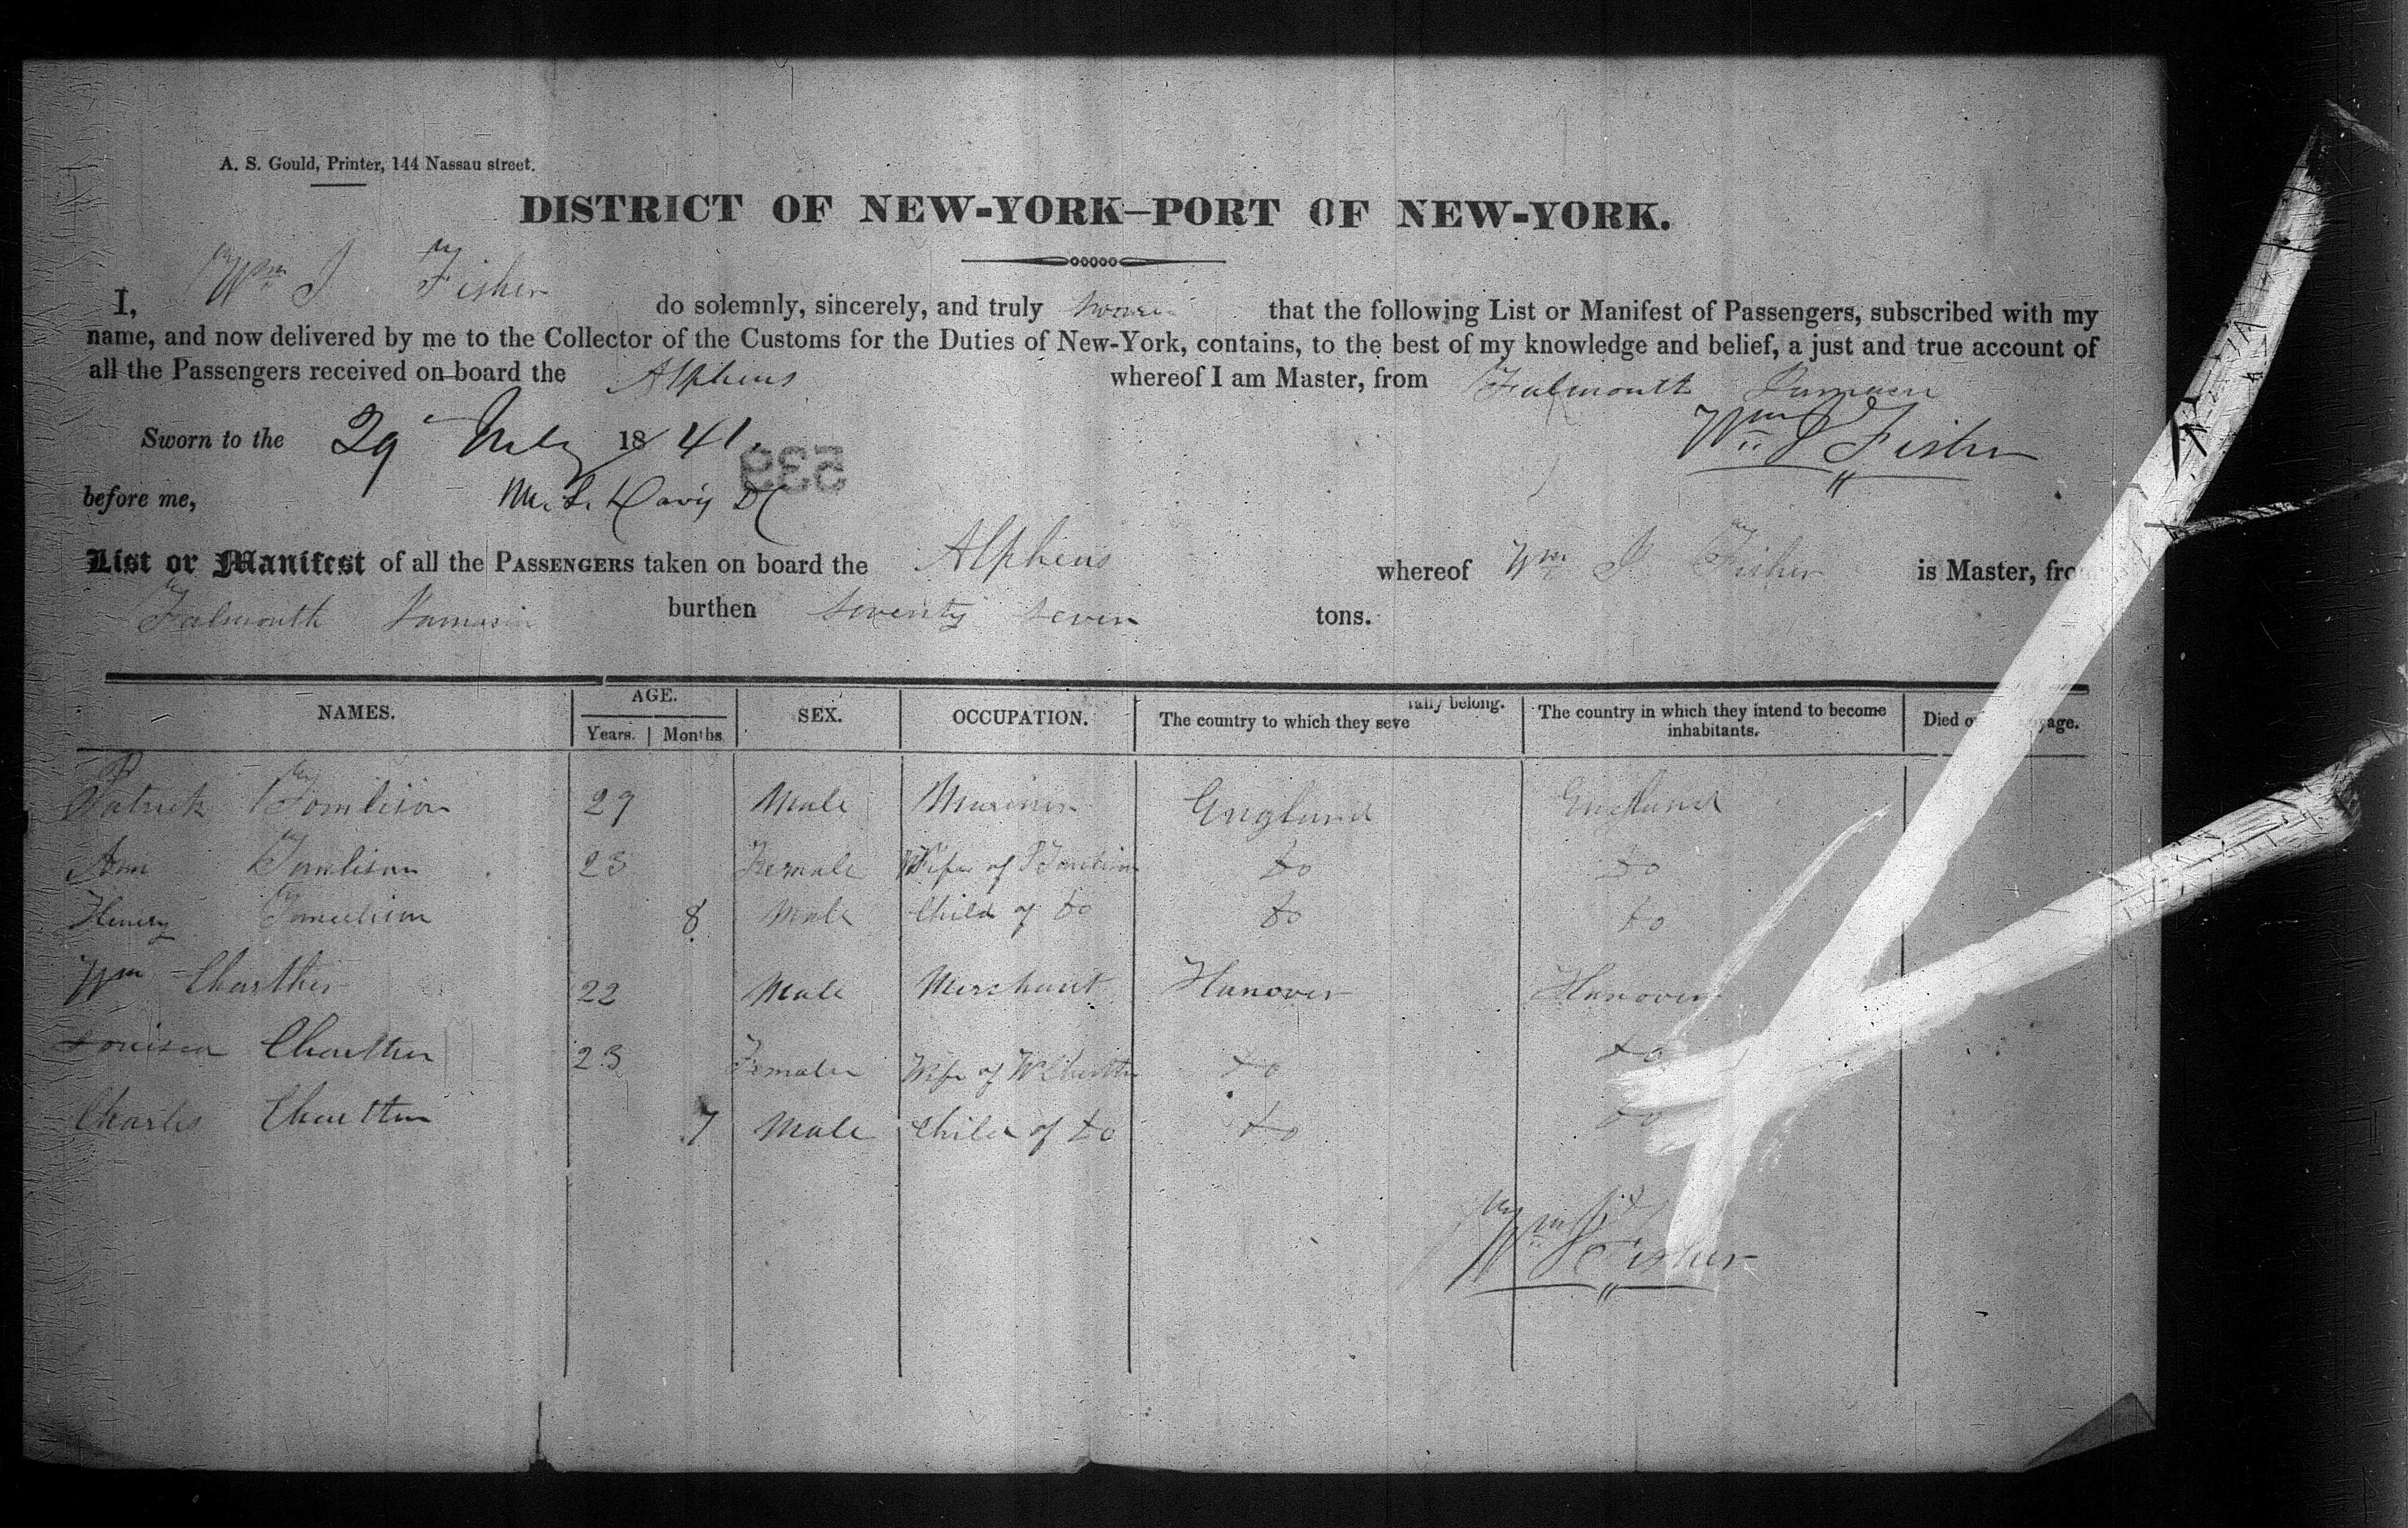 A. S. Gould, Printer, 144 Nassau street.
DISTRICT OF NEW-YORK—PORT OF NEW-YORK.
I, Wm J Fisher do solemnly, sincerely, and truly that the following List or Manifest of Passengers, subscribed with my
name, and now delivered by me to the Collector of the Customs for the Duties of New-York, contains, to the best of my knowledge and belief, a just and true account of
all the Passengers received on board the Alpheus whereof I am Master, from Falmouth
Wm J Fisher
Sworn to the 29 July 1841.
539
before me, M. L. Davis
List or Manifest of all the PASSENGERS taken on board the Alpheus whereof Wm J Fisher is Master, from
Falmouth burthen Seventy Seven tons.
NAMES. AGE. Years. Months. SEX. OCCUPATION. The country to which they severally belong. The country in which they intend to become inhabitants. Died on voyage.
Patrick Tomlison 29 Male Mariner England England
Ann Tomlison 23 Female Wife of P Tomlison do do
Henery Tomlison 8 Male Child of do do do
Wm 22 Male Merchant Hanover Hanover
Louisea 23 Female Wife of do do
Charles 7 Male Child of do do do
Wm J Fisher